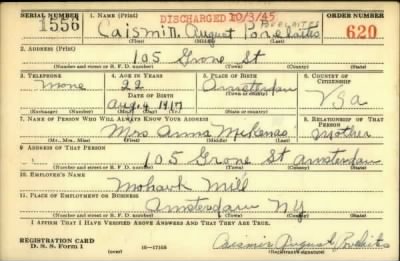 SERIAL NUMBER 1. NAME (Print) DISCHARGED 10/3/45 ORDER NUMBER
1556 Caismir. August Povelaites 620
(First) (Middle) (Last)
2. ADDRESS (Print)
105 Grove St
(Number and street or R. F. D. number) (Town) (County) (State)
3. TELEPHONE 4. AGE IN YEARS 5. PLACE OF BIRTH 6. COUNTRY OF CITIZENSHIP
None 22 Amsterdam
DATE OF BIRTH (Town or county)
Aug 4 1917 USA
(Exchange) (Number) (Mo.) (Day) (Yr.) (State or country)
7. NAME OF PERSON WHO WILL ALWAYS KNOW YOUR ADDRESS 8. RELATIONSHIP OF THAT PERSON
Mrs Anna Mother
(Mr., Mrs., Miss) (First) (Middle) (Last)
9. ADDRESS OF THAT PERSON
105 Grove St Amsterdam
(Number and street or R. F. D. number) (Town) (County) (State)
10. EMPLOYER'S NAME
Mohawk Mill
11. PLACE OF EMPLOYMENT OR BUSINESS
Amsterdam NY
(Number and street or R. F. D. number) (Town) (County) (State)
I AFFIRM THAT I HAVE VERIFIED ABOVE ANSWERS AND THAT THEY ARE TRUE.
REGISTRATION CARD
D. S. S. Form 1 (over) 16-17105 August
(Registrant's signature)